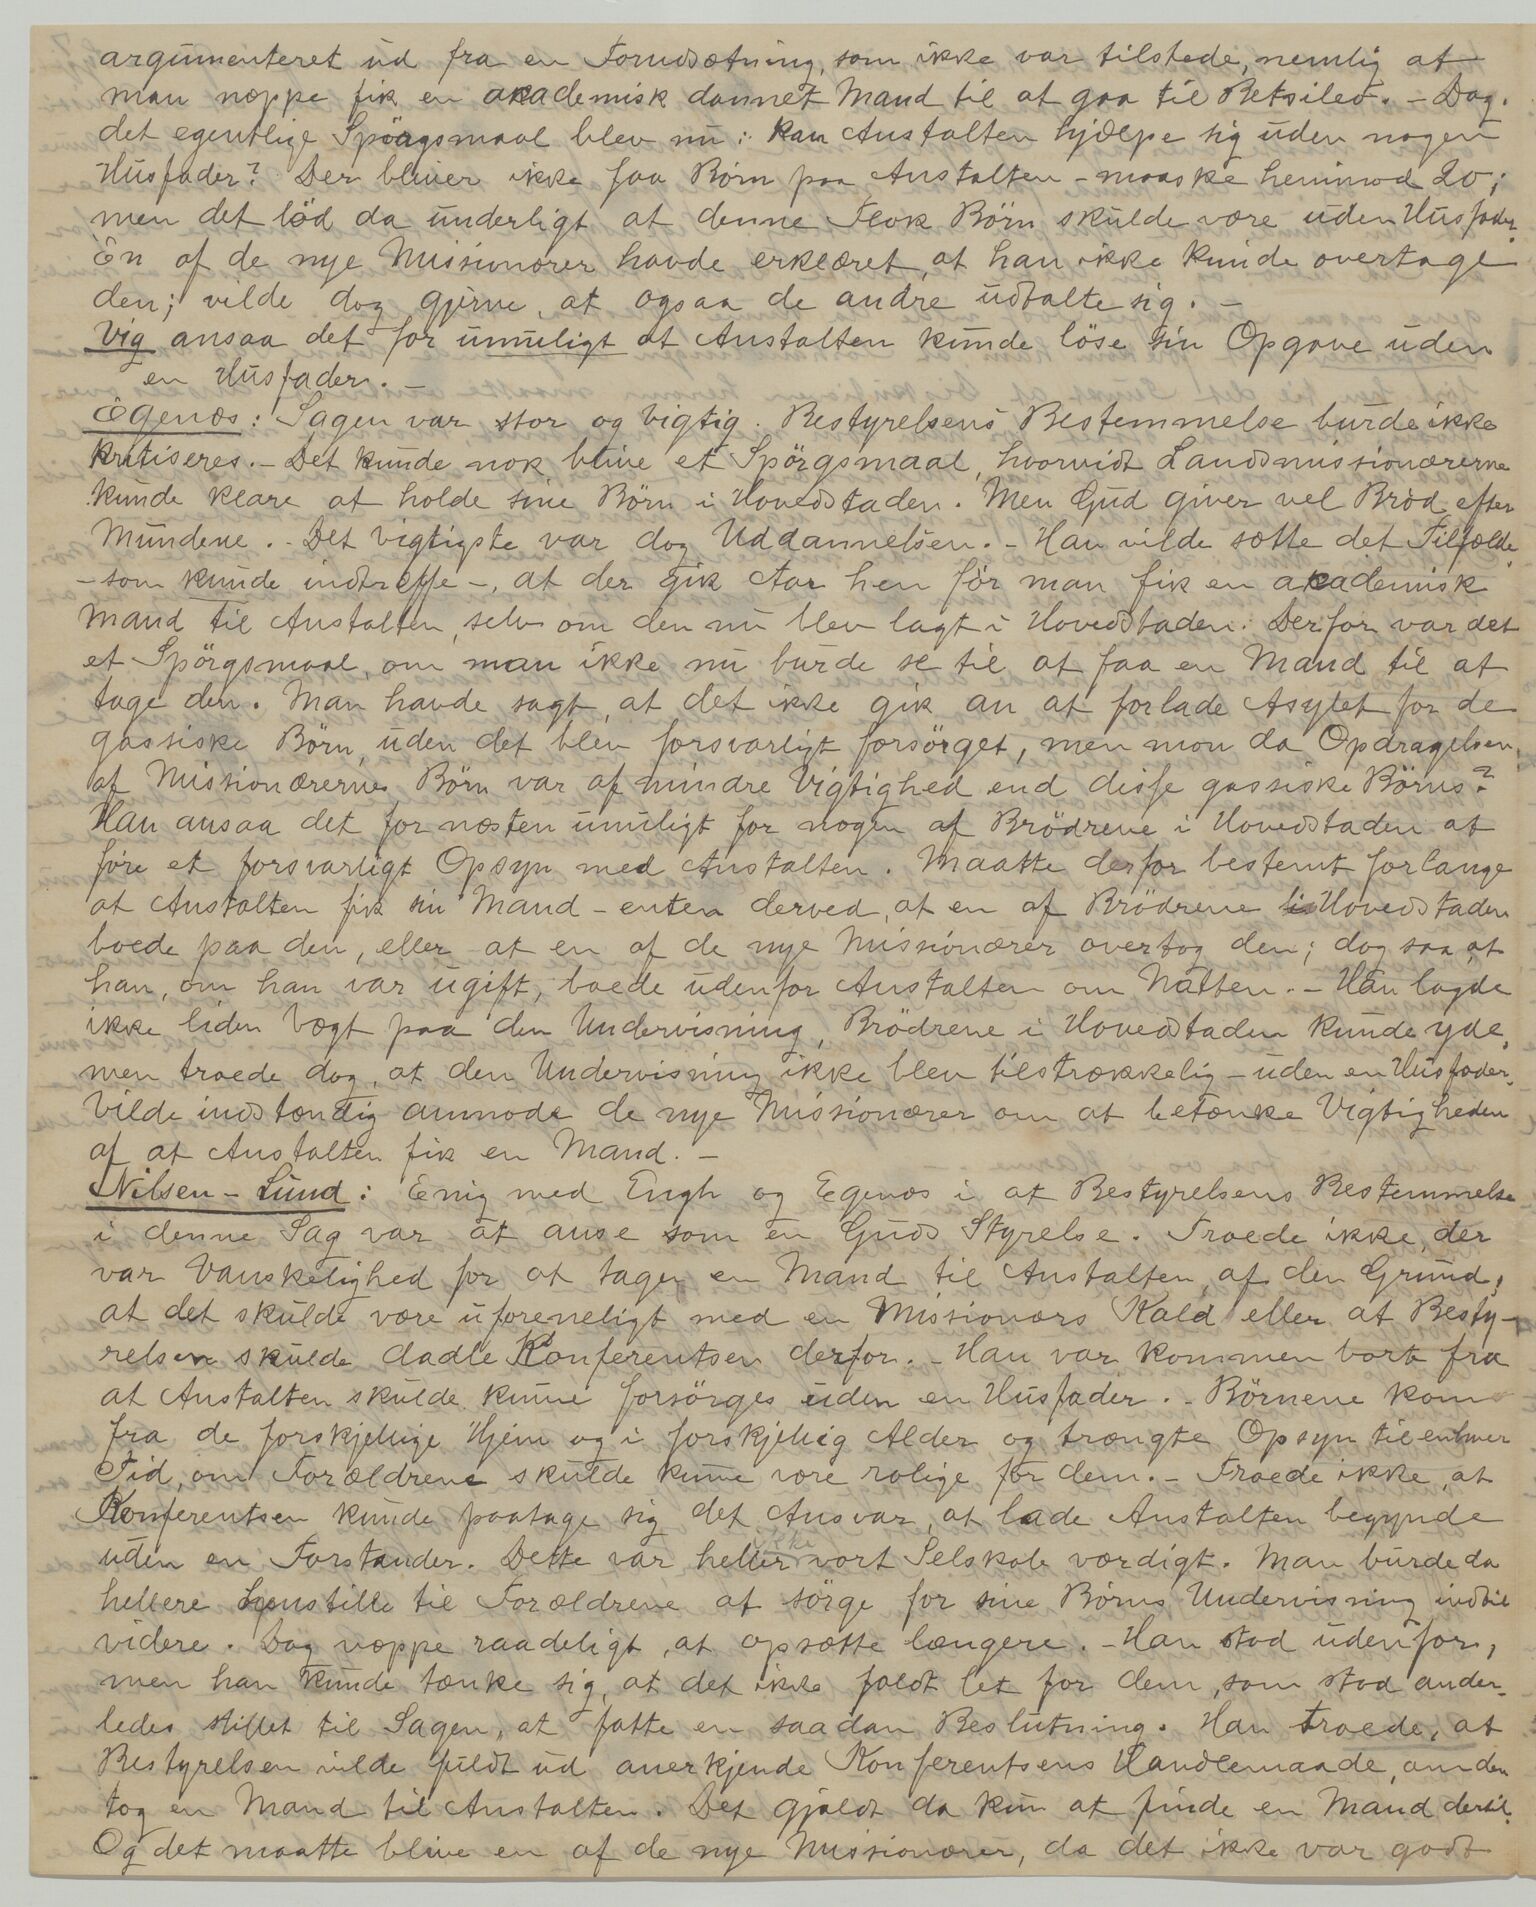 argumenteret ud fra en Forudsætning, som ikke var tilstede, nemlig at
man næppe fik en akademisk dannet Mand til at gaa til Betsileo. - Dog.
det egentlige Spörgsmaal blev nu: kan Anstalten hjælpe sig uden nogen
Husfader? Der bliver ikke faa Börn paa Anstalten - maaske henimod 20;
men det löd da underligt at denne Flok Börn skulde være uden Husfader.
En af de nye Missionærer havde erklæret, at han ikke kunde overtage
den; vilde dog gjerne, at ogsaa de andre udtalte sig. -
Vig ansaa det for umuligt at Anstalten kunde löse sin Opgave uden
en Husfader. -
Egenæs: Sagen var stor og vigtig. Bestyrelsens Bestemmelse burde ikke
kritiseres. - Det kunde nok blive et Spörgsmaal, hvorvidt Landsmissionærerne
kunde klare at holde sine Börn i Hovedstaden. Men Gud giver vel Bröd efter
Mundene. - Det vigtigste var dog Uddannelsen. - Han vilde sætte det Tilfælde,
- som kunde indtræffe -, at der gik Aar hen för man fik en akademisk
Mand til Anstalten, selv om den nu blev lagt i Hovedstaden. Derfor var det
et Spörgsmaal, om man ikke nu burde se til at faa en Mand til at
tage den. Man havde sagt, at det ikke gik an at forlade Asylet for de
gassiske Börn, uden det blev forsvarligt forsörget, men mon da Opdragelsen
af Missionærernes Börn var af mindre Vigtighed end disse gassiske Börns?
Han ansaa det for næsten umuligt for nogen af Brödrene i Hovedstaden at
före et forsvarligt Opsyn med Anstalten. Maatte derfor bestemt forlange
at Anstalten fik sin Mand - enten derved, at en af Brödrene i Hovedstaden
boede paa den, eller at en af de nye Missionærer overtog den; dog saa, at
han, om han var ugift, boede udenfor Anstalten om Natten. - Han lagde
ikke liden Vægt paa den Undervisning, Brödrene i Hovedstaden kunde yde,
men troede dog, at den Undervisning ikke blev tilstrækkelig - uden en Husfader.
Vilde indstændig anmode de nye Missionærer om at betænke Vigtigheden
af at Anstalten fik en Mand. -
Nilsen - Lund: Enig med Engh og Egenæs i at Bestyrelsens Bestemmelse
i denne Sag var at anse som en Guds Styrelse. Troede ikke, der
var Vanskelighed for at tage en Mand til Anstalten af den Grund,
at det skulde være uforeneligt med en Missionærs Kald eller at Besty-
relsen skulde dadle Konferentsen derfor. - Han var kommen bort fra
at Anstalten skulde kunne forsörges uden en Husfader. - Börnene kom
fra de forskjellige Hjem og i forskjellig Alder og trængte Opsyn til enhver
Tid, om Forældrene skulde kunne være rolige for dem. - Troede ikke, at
Konferentsen kunde paatage sig det Ansvar, at lade Anstalten begynde
uden en Forstander. Dette var heller ikke vort Selskab værdigt. Man burde da
hellere henstille til Forældrene at sörge for sine Börns Undervisning indtil
videre. Dog næppe raadeligt, at opsætte længere. - Han stod udenfor,
men han kunde tænke sig, at det ikke faldt let for dem, som stod ander-
ledes stillet til Sagen, at fatte en saadan Beslutning. Han troede, at
Bestyrelsen vilde fuldt ud anerkjende Konferentsens Handlemaade, om den
tog en Mand til Anstalten. Det gjaldt da kun at finde en Mand dertil.
Og det maatte blive en af de nye Missionærer, da det ikke var godt